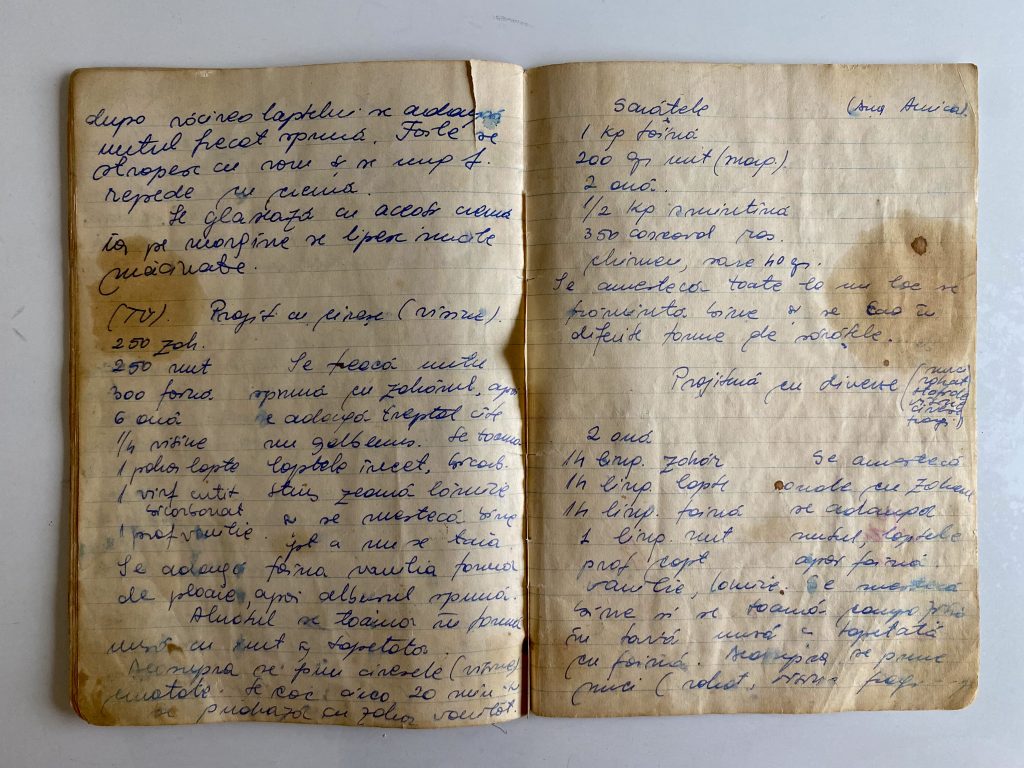 după răcirea laptelui se adaugă
untul frecat spumă. Foile se
stropesc cu rom și se ump f.
repede cu cremă.
Se glasează cu aceeași cremă
iar pe margine se lipesc nucile
măcinate.
(TV). Prajit cu cirese (visine).
250 zah.
250 unt Se freacă untu
300 faină spumă cu zahărul, apoi
6 ouă se adaugă treptat cîte
1/4 visine un galbenus. Se toarnă
1 pahar lapte laptele încet, bicarb.
1 vîrf cutit stins zeamă lămîie
bicarbonat
1 praf vanilie. și se mestecă bine
pt a nu se taia.
Se adaugă făina vanilia forma
de ploaie, apoi albusul spumă.
Aluatul se toarna în formă
unsă cu unt și tapetata.
Deasupra se pun ciresele (visine)
Se coc circa 20 min și
se pudrează cu zahar vanilat.
Sărățele (Ana Amica).
1 kg făină
200 gr unt (marg).
2 ouă.
1/2 kg smîntînă
350 cascaval ras.
chimen, sare 40 gr.
Se amestecă toate la un loc se
frămîntă bine și se taie în
diferite forme de sărățele.
Prajitură cu diverse (nuci
rahat
visine
cirese
fragi)
2 ouă
14 ling. zahăr Se amestecă
14 ling. lapte ouăle cu zahăru
14 ling. faină se adaugă
1 ling. unt untul, laptele
praf copt apoi făină.
vanilie, lămîie. Se mestecă
bine si se toarnă compoziția
în tavă unsă și tapetată
cu faină. Deasupra se pune
nuci (rahat, visine fragi